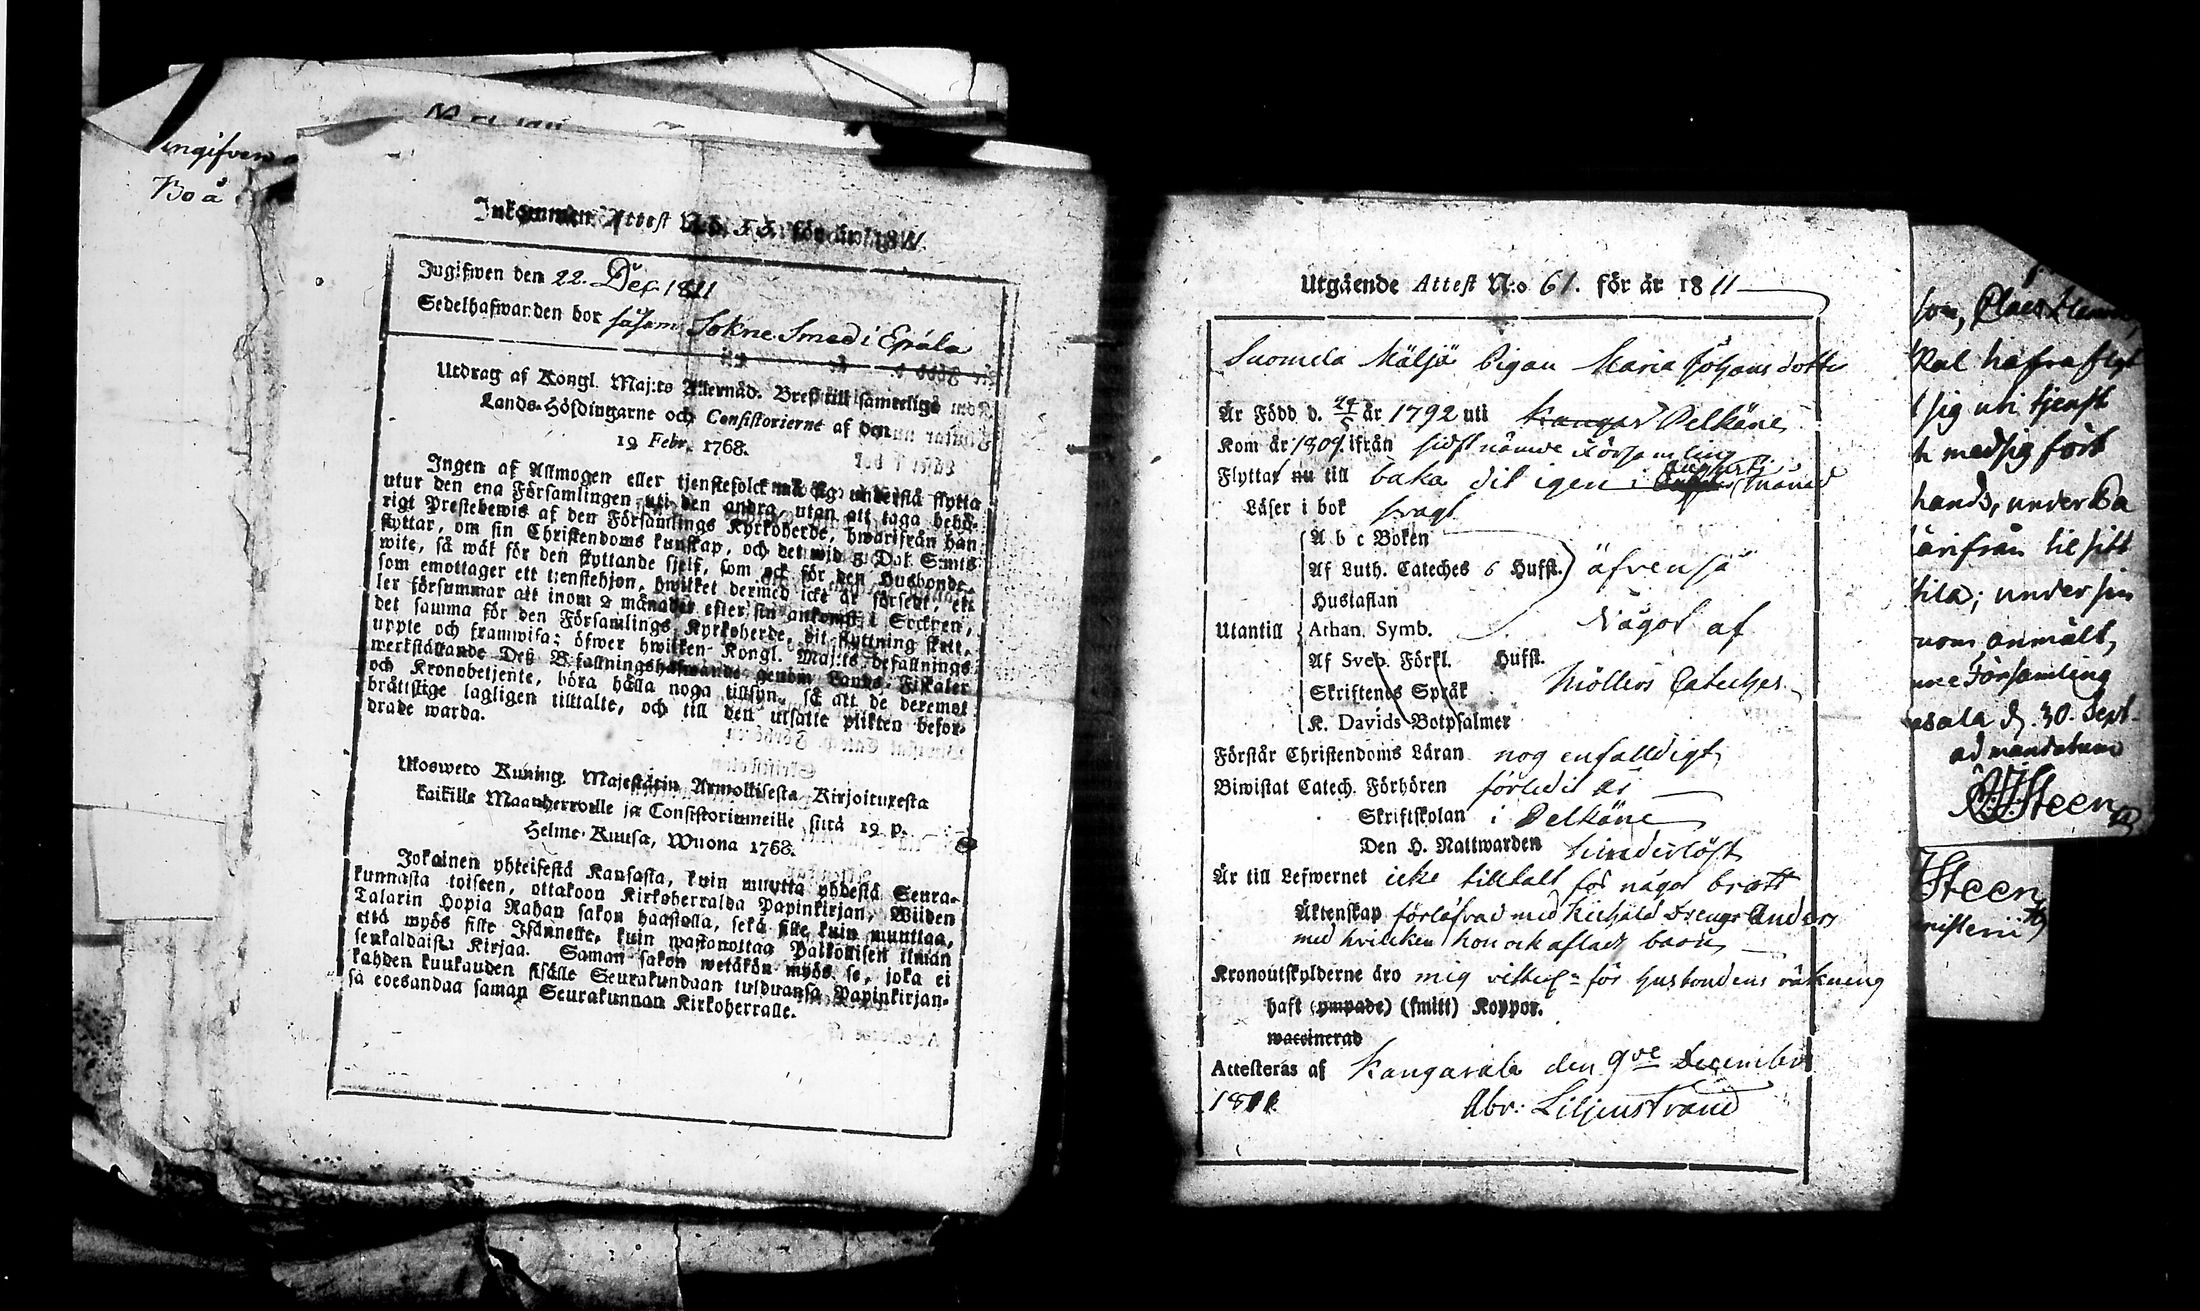 ingifven
Inkommen Attest N:o 55. för år 1811.
Ingifwen den 22. Dec. 1811
Sedelhafwanden bor såsom Sokne Smed i Epåla
Utdrag af Kongl. Maj:ts Allernåd. Bref till samtelige
Lands-Höfdingarne och Consistorierne af den
19 Febr. 1768.
Ingen af Allmogen eller tjenstefolck må sig understå flytta
utur den ena Församlingen uti den andra, utan att taga behö-
rigt Prestebewis af den Församlings Kyrkoherde, hwarifrån han
flyttar, om sin Christendoms kunskap, och det wid 5 Dal. S:mts
wite, så wäl för den flyttande sjelf, som ock för den Husbonde
som emottager ett tjenstehjon, hwilket dermed icke är försedt, el-
ler försummar att inom 2 månader efter sin ankomst i Socknen,
det samma för den Församlings Kyrkoherde, dit flyttning skett,
uppte och framwisa; öfwer hwilken Kongl. Maj:ts befallnings
werkställande Dess Befallningshafwande genom Lands-Fiskaler
och Kronobetjente, böra hålla noga tillsyn, så att de deremot
bråttslige lagligen tilltalte, och till den utsatte plikten befor-
drade warda.
Ulosweto Kuning. Majestätin Armollisesta Kirjoituxesta
kaikille Maanherroille ja Consistoriumeille, siitä 19 p.
Helme-Kuusa, Wuona 1768.
Jokainen yhteisestä Kansasta, kuin muutta yhdestä Seura-
kunnasta toiseen, ottakoon Kirkoherralda Papinkirjan, Wiiden
Talarin Hopia Rahan sakon haastolla, sekä sille kuin muuttaa,
että myös sille Isännelle, kuin wastanottaa Palkollisen ilman
senkaldaista Kirjaa. Saman sakon wetäkön myös se, joka ei
kahden kuukauden sisälle Seurakundaan tulduansa Papinkirjan-
sa edesandaa saman Seurakunnan Kirkoherralle.
Utgående Attest N:o 61. för år 1811
Suomela Mäljä Pigan Maria Johans dotter
Är Född d. år 1792 uti Kangas Pelkäne
Kom år 1809 ifrån sidstnämde Församling
Flyttar nu till baka dit igen i Augusti månad
Läser i bok svagt
A b c Boken
Af Luth. Cateches 6 Hufst. äfvenså
Hustaflan
Utantill Athan. Symb. Något af
Af Sveb. Förkl. Hufst.
Skriftenes Språk Möllers Cateches
K. Davids Botpsalmer
Förstår Christendoms Läran nog enfaldigt
Biwistat Catech. Förhören förledit år
Skriftskolan i Pelkäne
Den H. Nattwarden hinderlöst
Är till Lefwernet icke tilltalt för något brott
Äktenskap förlofvad med Drengr Anders
med hvilken hon ock aflat barn
Kronoutskylderne äro mig vitterl. för husbondens räkning
haft (ympade) (smitt) Koppor.
wacsinerad
Attesteras af Kangasala den 9de December
1811. Abr: Liljenstrand
son, Claes
skal hafva flyt
sig uti tjenst
medsig fört
hands, under
ärifrån til sitt
tila; under sin
anmält,
Församling
d. 30. Sept.
ad mandatum
Steen
Steen